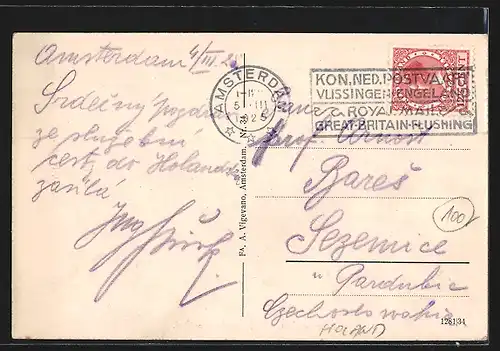 Amsterdam 4/III.2
Srdečný pozdrav
ze služební
cesty do Holandska
zasílá
AMSTERDAM
5 III
1925
KON.NED.POSTVAART
VLISSINGEN-ENGELAND
ROYAL MAIL
GREAT-BRITAIN-FLUSHING
Pan
prof. Arnošt
Bareš
Sezemice
u Pardubic
Czechoslovakia
HOLAND
100
FA. A. Vigevano, Amsterdam.
128134